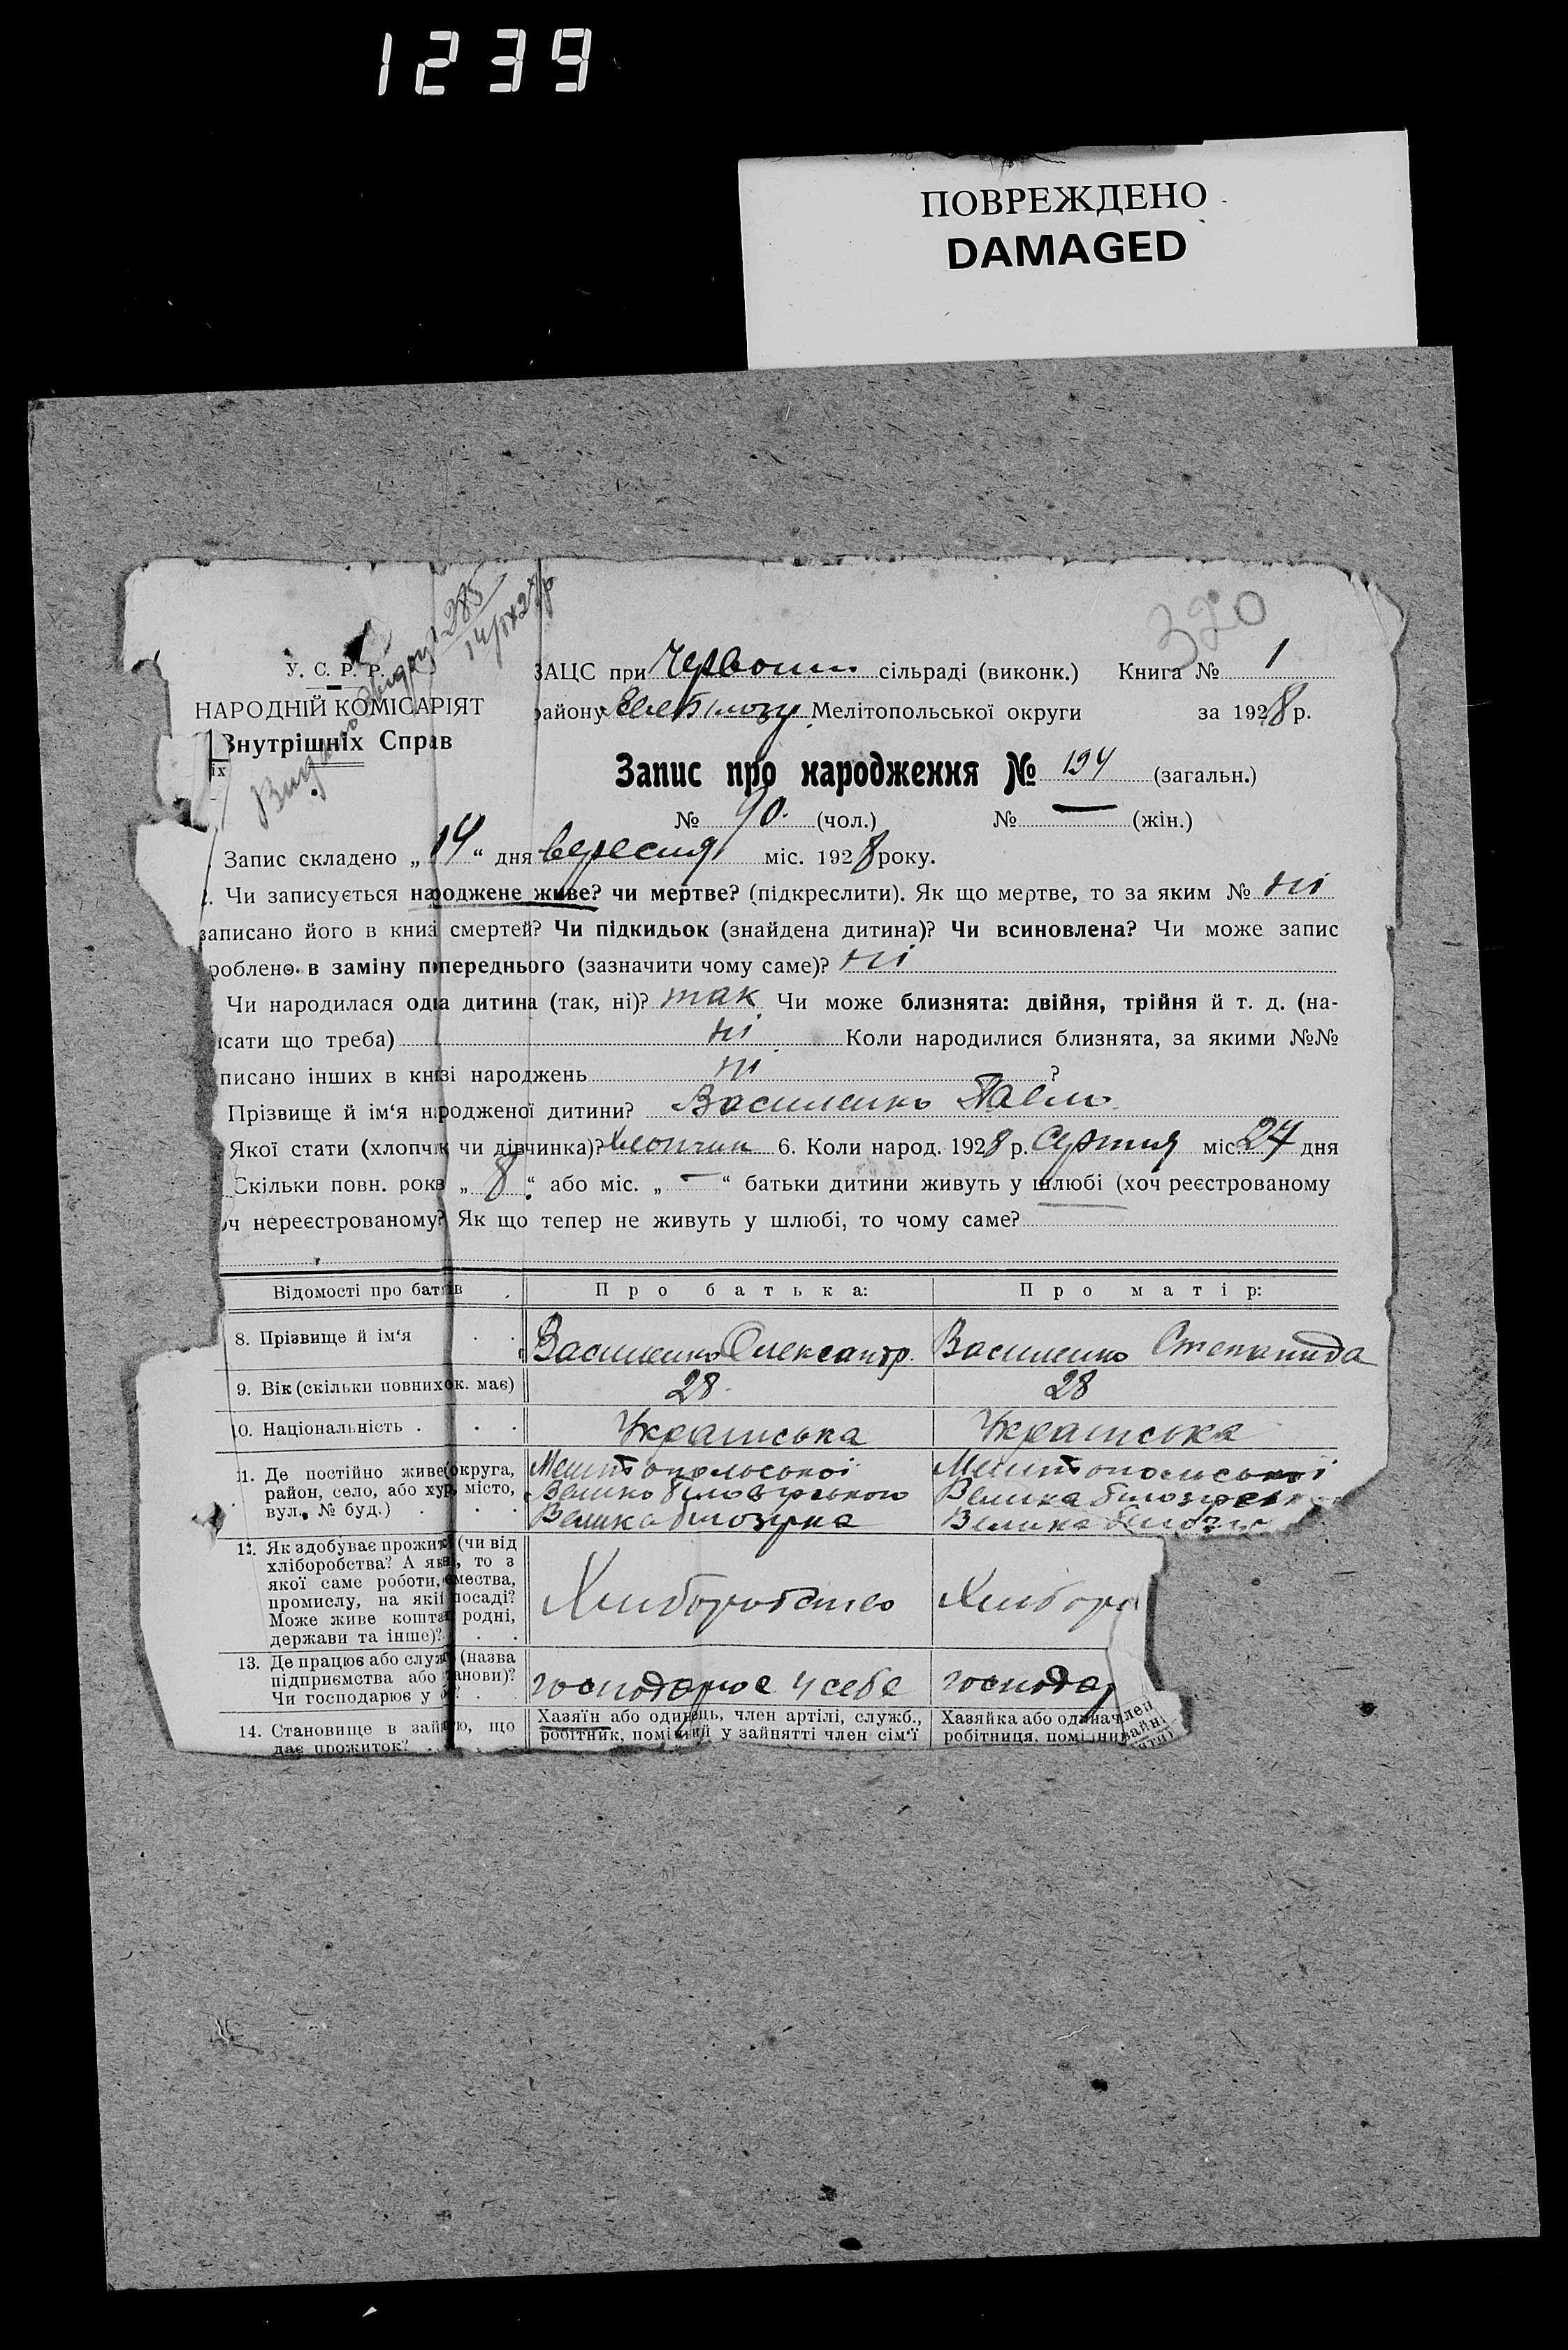 1239
ПОВРЕЖДЕНО
DAMAGED
320
285
У. С. Р. Р.
НАРОДНІЙ КОМІСАРІЯТ
Внутрішніх Справ
іх
ЗАЦС при Червон сільраді (виконк.) Книга № 1
району Мелітопольської округи за 1928 р.
Запис про народження № 194 (загальн.)
№ 90. (чол.) № — (жін.)
Запис складено „14“ дня вересня міс. 1928 року.
2. Чи записується народжене живе? чи мертве? (підкреслити). Як що мертве, то за яким № ні
записано його в книзі смертей? Чи підкидьок (знайдена дитина)? Чи всиновлена? Чи може запис
роблено в заміну попереднього (зазначити чому саме)? ні
Чи народилася одна дитина (так, ні)? так Чи може близнята: двійня, трійня й т. д. (на-
исати що треба) ні Коли народилися близнята, за якими №№
писано інших в книзі народжень ні ?
Прізвище й ім‘я народженої дитини? Василенко Павло
Якої стати (хлопчик чи дівчинка)? хлопчик 6. Коли народ. 1928 р. Серпня міс. 27 дня
Скільки повн. років „8“ або міс. „—“ батьки дитини живуть у шлюбі (хоч реєстрованому
ч нереєстрованому? Як що тепер не живуть у шлюбі, то чому саме?
Відомості про батьків Про батька: Про матір:
8. Прізвище й ім‘я Василенко Олександр. Василенко Степанида
9. Вік (скільки повних рок. має) 28 28
10. Національність Українська Українська
11. Де постійно живе (округа, Мелітопольської Мелітопольської
район, село, або хут., місто, Велико Білозірського Велика Білозірськ
вул., № буд.) Велика Білозірка Велика Білозір
12. Як здобуває прожиток (чи від
хліборобства? А як ні, то з
якої саме роботи, ремества,
промислу, на якій посаді? Хліборобство Хлібор
Може живе коштам родні,
держави та інше)?
13. Де працює або служить (назва
підприємства або установи)? господарює у себе господар
Чи господарює у себе?
14. Становище в зайняттю, що Хазяїн або одинець, член артілі, служб., Хазяйка або одиначка, член
дає прожиток? робітник, помічний у зайнятті член сім‘ї робітниця, помічний